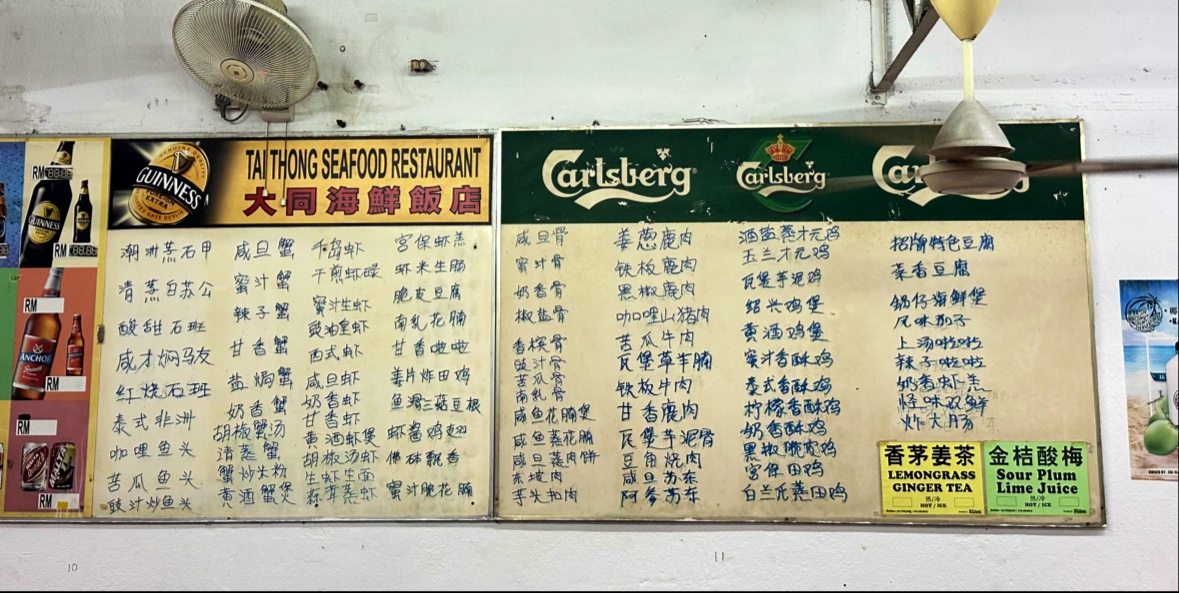 GUINNESS
TAI THONG SEAFOOD RESTAURANT
大同海鮮飯店
潮洲蒸石甲
清蒸白苏公
酸甜石班
咸才焖马友
红烧石班
泰式非洲
咖哩鱼头
苦瓜鱼头
豉汁炒鱼头
咸旦蟹
蜜汁蟹
辣子蟹
甘香蟹
盐焗蟹
奶香蟹
胡椒蟹汤
清蒸蟹
蟹炒米粉
黄酒蟹煲
千岛虾
干煎虾碌
蜜汁生虾
豉油皇虾
西式虾
咸旦虾
奶香虾
甘香虾
黄酒虾煲
胡椒汤虾
生虾生面
蒜茸蒸虾
宫保虾羔
虾米生肠
脆皮豆腐
南乳花腩
甘香啦啦
姜片炸田鸡
鱼滑三菇豆根
虾酱鸡翅
佛砵飘香
蜜汁脆花腩
Carlsberg
Carlsberg
咸旦骨
蜜汁骨
奶香骨
椒盐骨
香槟骨
豉汁骨
苦瓜骨
南乳骨
咸鱼花腩煲
咸鱼蒸花腩
咸旦蒸肉饼
东坡肉
芋头扣肉
姜葱鹿肉
铁板鹿肉
黑椒鹿肉
咖哩山猪肉
苦瓜牛肉
瓦煲草羊腩
铁板牛肉
甘香鹿肉
瓦煲芋泥骨
豆角烧肉
咸旦苏东
阿参苏东
酒盐蒸才元鸡
玉兰才元鸡
瓦煲芋泥鸡
绍兴鸡煲
黄酒鸡煲
蜜汁香酥鸡
泰式香酥鸡
柠檬香酥鸡
奶香香酥鸡
黑椒脆皮鸡
宫保田鸡
白兰花蒸田鸡
招牌特色豆腐
菜香豆腐
锅仔海鲜煲
风味茄子
上汤啦啦
辣子啦啦
奶香虾羔
怪味双鲜
炸大肠
香茅姜茶
LEMONGRASS
GINGER TEA
热/冷
HOT / ICE
金桔酸梅
Sour Plum
Lime Juice
热/冷
HOT / ICE
RM
GUINNESS
RM
RM
ANCHOR
RM
RM
RM